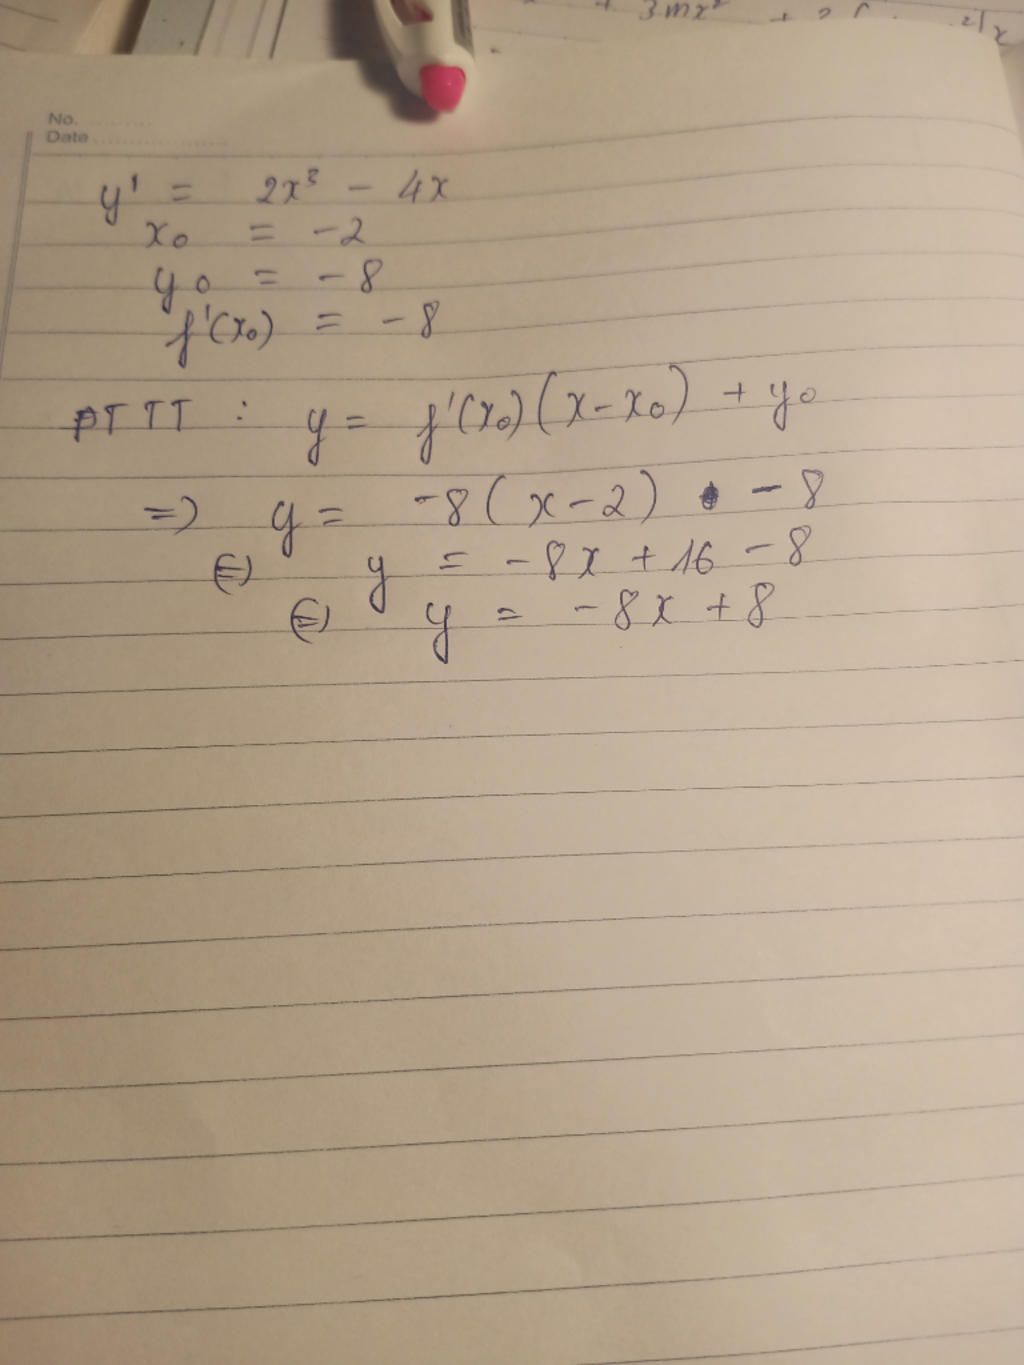 + 3mx²
No.
Date
y' = 2x³ - 4x
x₀ = -2
y₀ = -8
f'(x₀) = -8
PTTT : y = f'(x₀)(x - x₀) + y₀
=> y = -8(x - 2) - 8
<=> y = -8x + 16 - 8
<=> y = -8x + 8